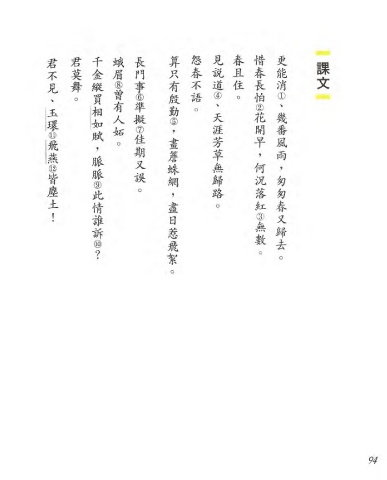 課文
更能消①、幾番風雨，匆匆春又歸去。
惜春長怕②花開早，何況落紅③無數。
春且住。
見說道④、天涯芳草無歸路。
怨春不語。
算只有殷勤⑤，畫簷蛛網，盡日惹飛絮。
長門事⑥準擬⑦佳期又誤。
蛾眉⑧曾有人妬。
千金縱買相如賦，脈脈⑨此情誰訴⑩？
君莫舞。
君不見、玉環⑪飛燕⑫皆塵土！
94